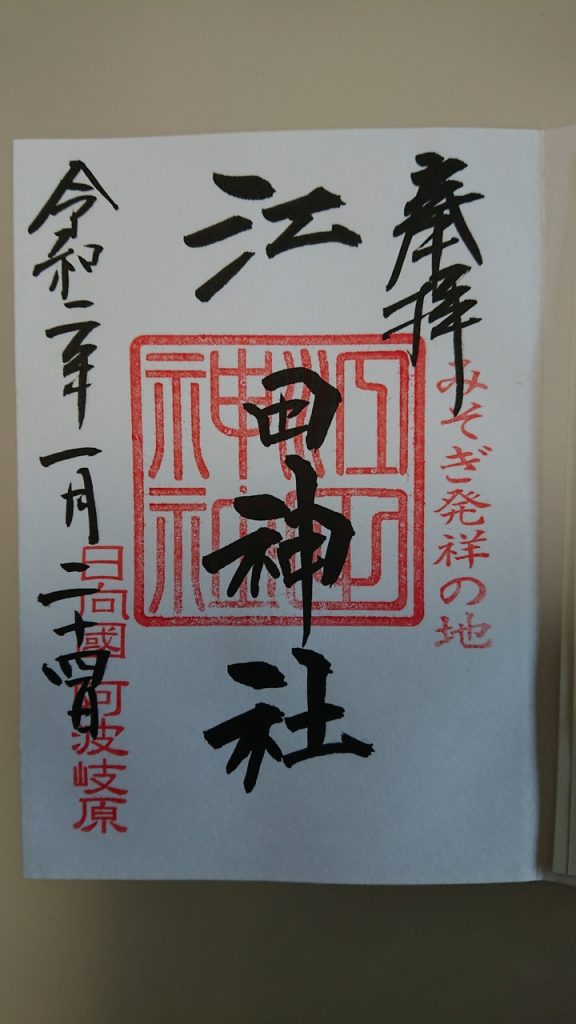 奉拝
みそぎ発祥の地
江田神社
江田
神社
令和二年一月二十四日
日向國阿波岐原